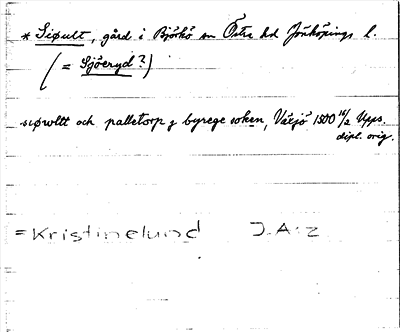 * Sipult, gård i Björkö sn Östra hd Jönköpings l.
(= Sjöeryd?)
siprwllt och palletorp j byrege soken, Växjö 1500 16/2 Upps.
dipl. orig.
= Kristinelund J.A:2